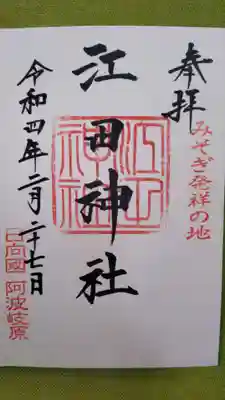 奉拝
みそぎ発祥の地
江田神社
江田神社
令和四年二月二十七日
日向國
阿波岐原